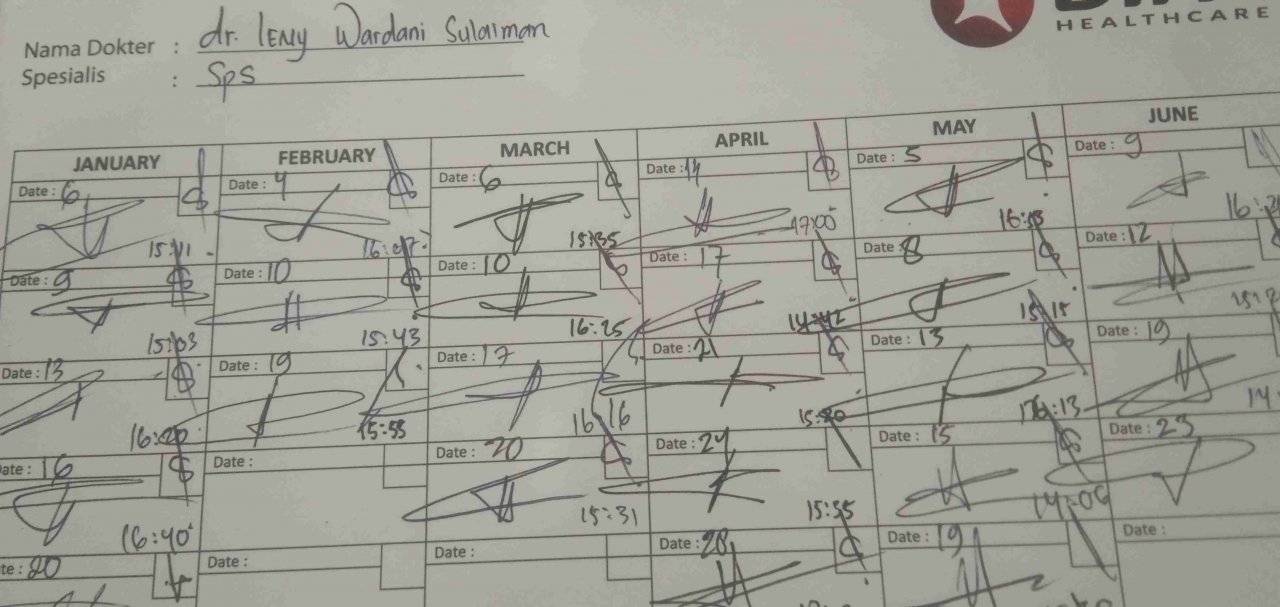 HEALTHCARE
Nama Dokter : dr. Leny Wardani Sulaiman
Spesialis : Sps
JANUARY FEBRUARY MARCH APRIL MAY JUNE
Date : 6 Date : 4 Date : 6 Date : 14 Date : 5 Date : 9
15:11 16:07 15:35 17:00
Date : 9 Date : 10 Date : 10 Date : 17 Date : 8 Date : 12
15:03 15:43 16:25 14:42 15:15
Date : 13 Date : 19 Date : 17 Date : 21 Date : 13 Date : 19
15:55 16:16
ate : 16 Date : Date : 20 Date : 24 Date : 15 Date : 23
16:40 15:31 15:55
te : 20 Date : Date : Date : 28 Date : 19 Date :